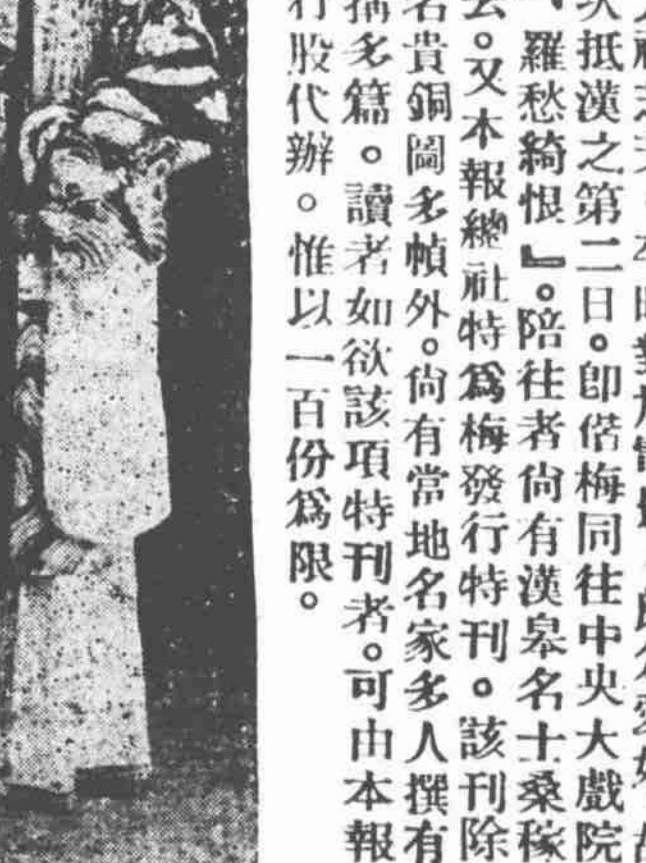 次抵漢之第二日。卽偕梅同往中央大戲院
羅愁綺恨』。陪往者尙有漢皋名士桑稼
去。又本報總社特爲梅發行特刊。該刊除
名貴銅圖多幀外。尙有當地名家多人撰有
摛多篇。讀者如欲該項特刊者。可由本報
行股代辦。惟以一百份爲限。